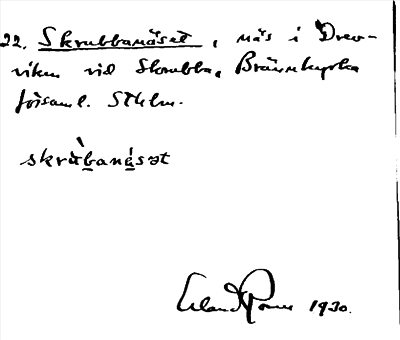 22. Skrubbanäset, näs i Drev-
viken vid Skrubba, Brännkyrka
församl. Sthlm.
skrùbanä́sət
Erland Rosell 1930.